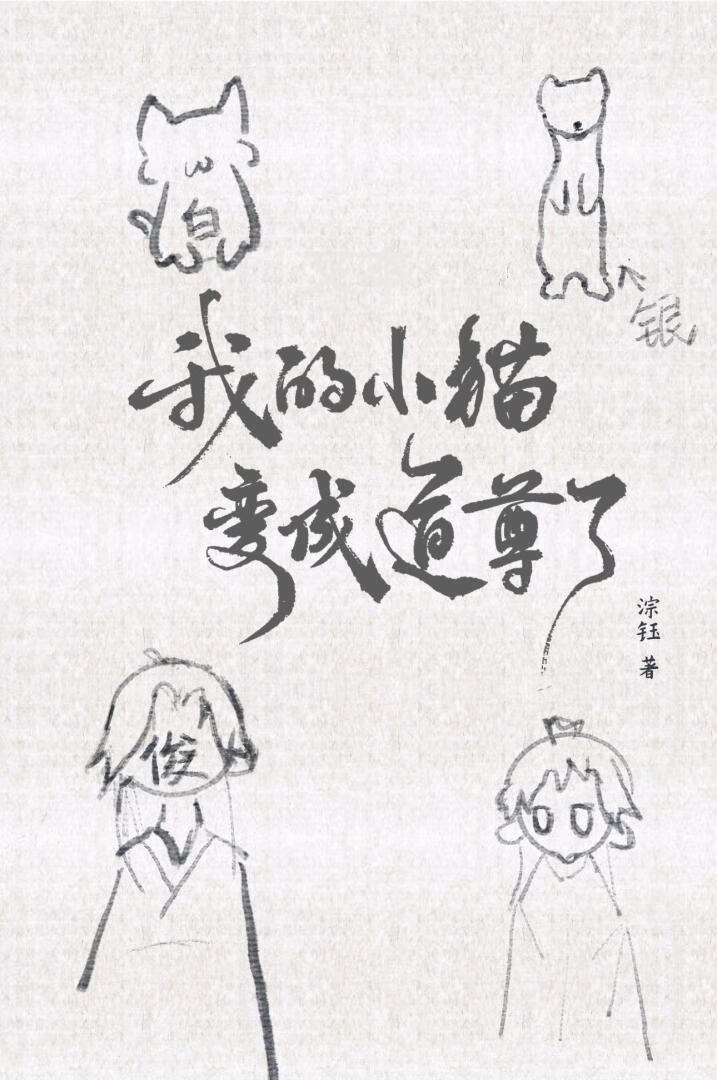 白
银
我的小貓
变成道尊了
淙钰 著
俊